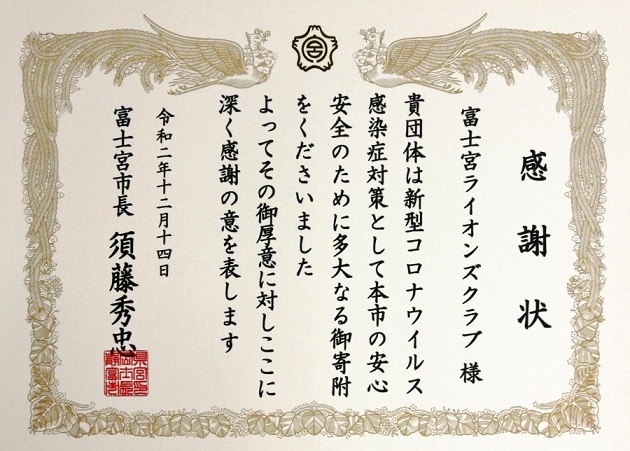 感謝状
富士宮ライオンズクラブ 様
貴団体は新型コロナウイルス
感染症対策として本市の安心
安全のために多大なる御寄附
をくださいました
よってその御厚意に対しここに
深く感謝の意を表します
令和二年十二月十四日
富士宮市長 須藤秀忠